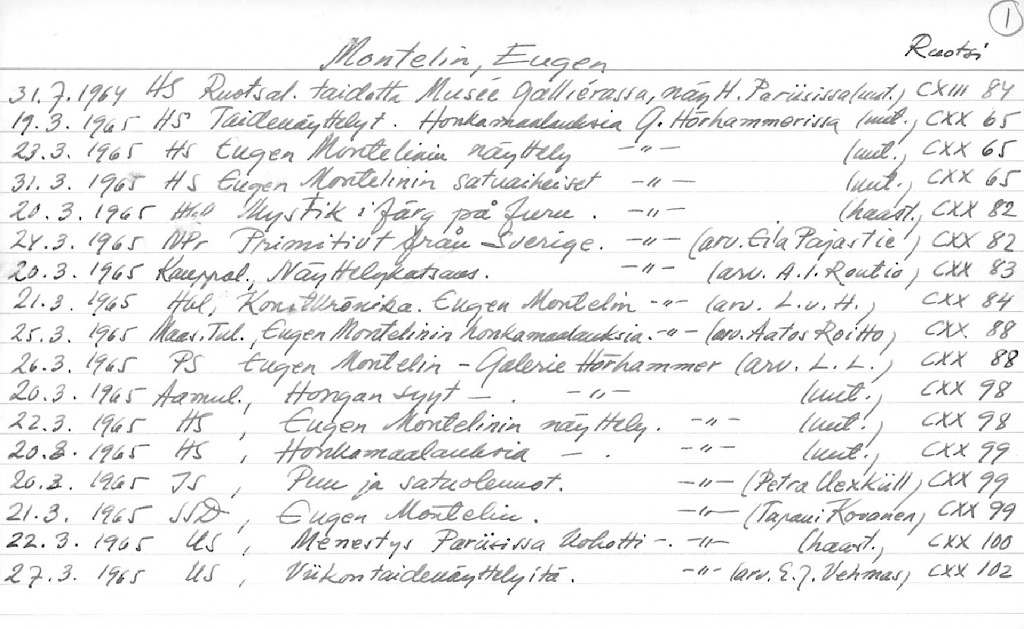 1
Ruotsi
Montelin, Eugen
31.7.1964 HS Ruotsal. taidetta Musée Gallièrassa, näy H. Pariisissa (uut.) CXIII 84
19.3.1965 HS Taidenäyttelyt. Honkamaalauksia G. Hörhammerissa (uut.) CXX 65
23.3.1965 HS Eugen Montelinin näyttely -"- (uut.) CXX 65
31.3.1965 HS Eugen Montelinin satuaiheiset -"- (uut.) CXX 65
20.3.1965 Mystik i färg på furu. -"- (haast.) CXX 82
24.3.1965 NPr Primitivt från Sverige. -"- (arv. Eila Pajastie) CXX 82
20.3.1965 Kauppal., Näyttelykatsaus. -"- (arv. A.I. Routio) CXX 83
21.3.1965 Hbl, Konstkrönika. Eugen Montelin -"- (arv. L.v.H.) CXX 84
25.3.1965 Maas.Tul., Eugen Montelinin honkamaalauksia. -"- (arv. Aatos Roitto) CXX 88
26.3.1965 PS Eugen Montelin - Galerie Hörhammer (arv. L.L.) CXX 88
20.3.1965 Aamul., Hongan syyt -. -"- (uut.) CXX 98
22.3.1965 HS, Eugen Montelinin näyttely. -"- (uut.) CXX 98
20.3.1965 HS, Honkamaalauksia -. -"- (uut.) CXX 99
20.3.1965 IS, Puu ja satuolennot. -"- (Petra Uexküll) CXX 99
21.3.1965 SSD, Eugen Montelin. -"- (Tapani Kovanen) CXX 99
22.3.1965 US, Menestys Pariisissa kohotti -. -"- (haast.) CXX 100
27.3.1965 US, Viikon taidenäyttelyitä. -"- (arv. E.J. Vehmas) CXX 102